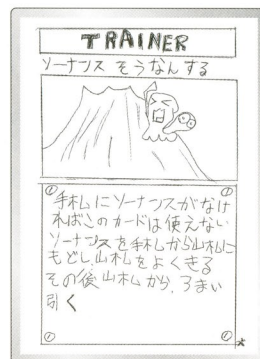 TRAINER
ソーナンス そうなんする
手札にソーナンスがなけ
ればこのカードは使えない
ソーナンスを手札から山札に
もどし、山札をよくきる
その後山札から、3まい
引く